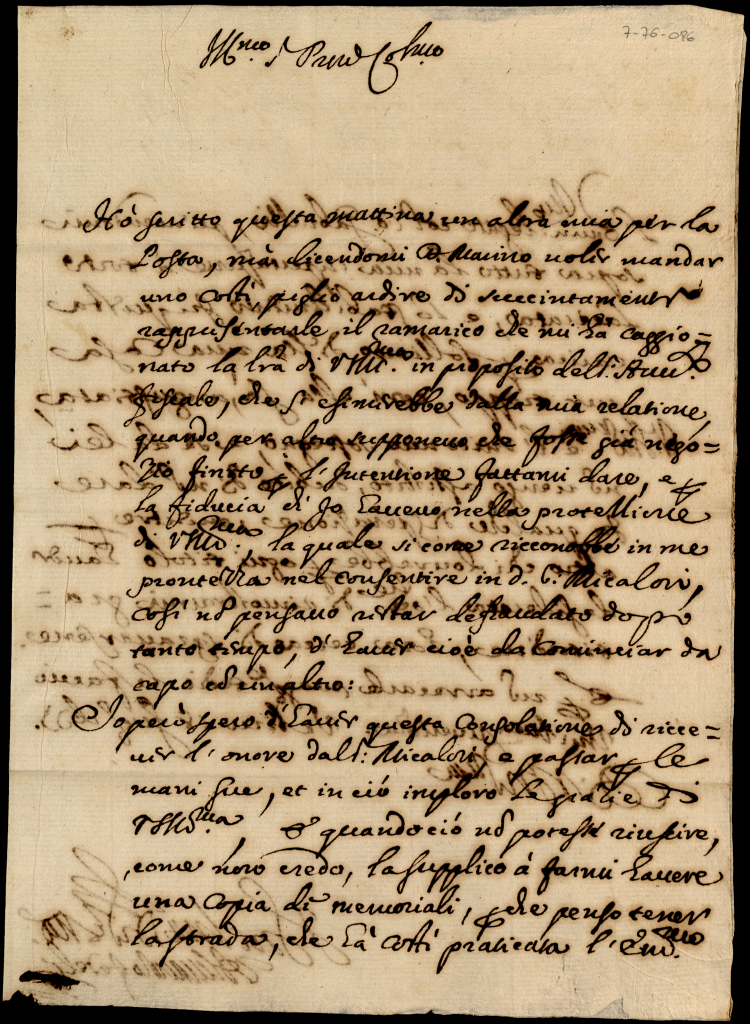 7-76-086
Ill.mo s.r Prnē Col.mo
Hò scritto questa mattina un altra mia per la
Posta, mà dicendomi D. Marino voler mandar
uno costì, piglio ardire di succintamente
rappresentarle il ramarico che mi hà caggio=
nato la lrā di VSIll.ma in proposito del S.r Auu.o
fiscale, che s'esimerebbe dalla mia relatione,
quando per altro supponeuo che fosse già nego=
tio finito, l'Intentione fattami dare, e
la fiducia ch'Io haueuo nella protettione
di VSIll.ma, la quale si come ricconobbe in me
prontezza nel consentire in d.o S.r Micalori,
così nō pensauo restar defraudato dopò
tanto tempo, d'hauer cioè da Cominciar da
capo cō un altro:
Io però spero d'hauer questa Consolatione di ricce=
uer l'onore dal S.r Micalori, e passar p le
mani sue, et in ciò imploro le gratie di
VSIll.ma, e quando ciò nō potesse riuscire,
come non credo, la supplico à farmi hauere
una copia di memoriali, p che penso tener
la strada, che hà costì praticata l'Em.mo